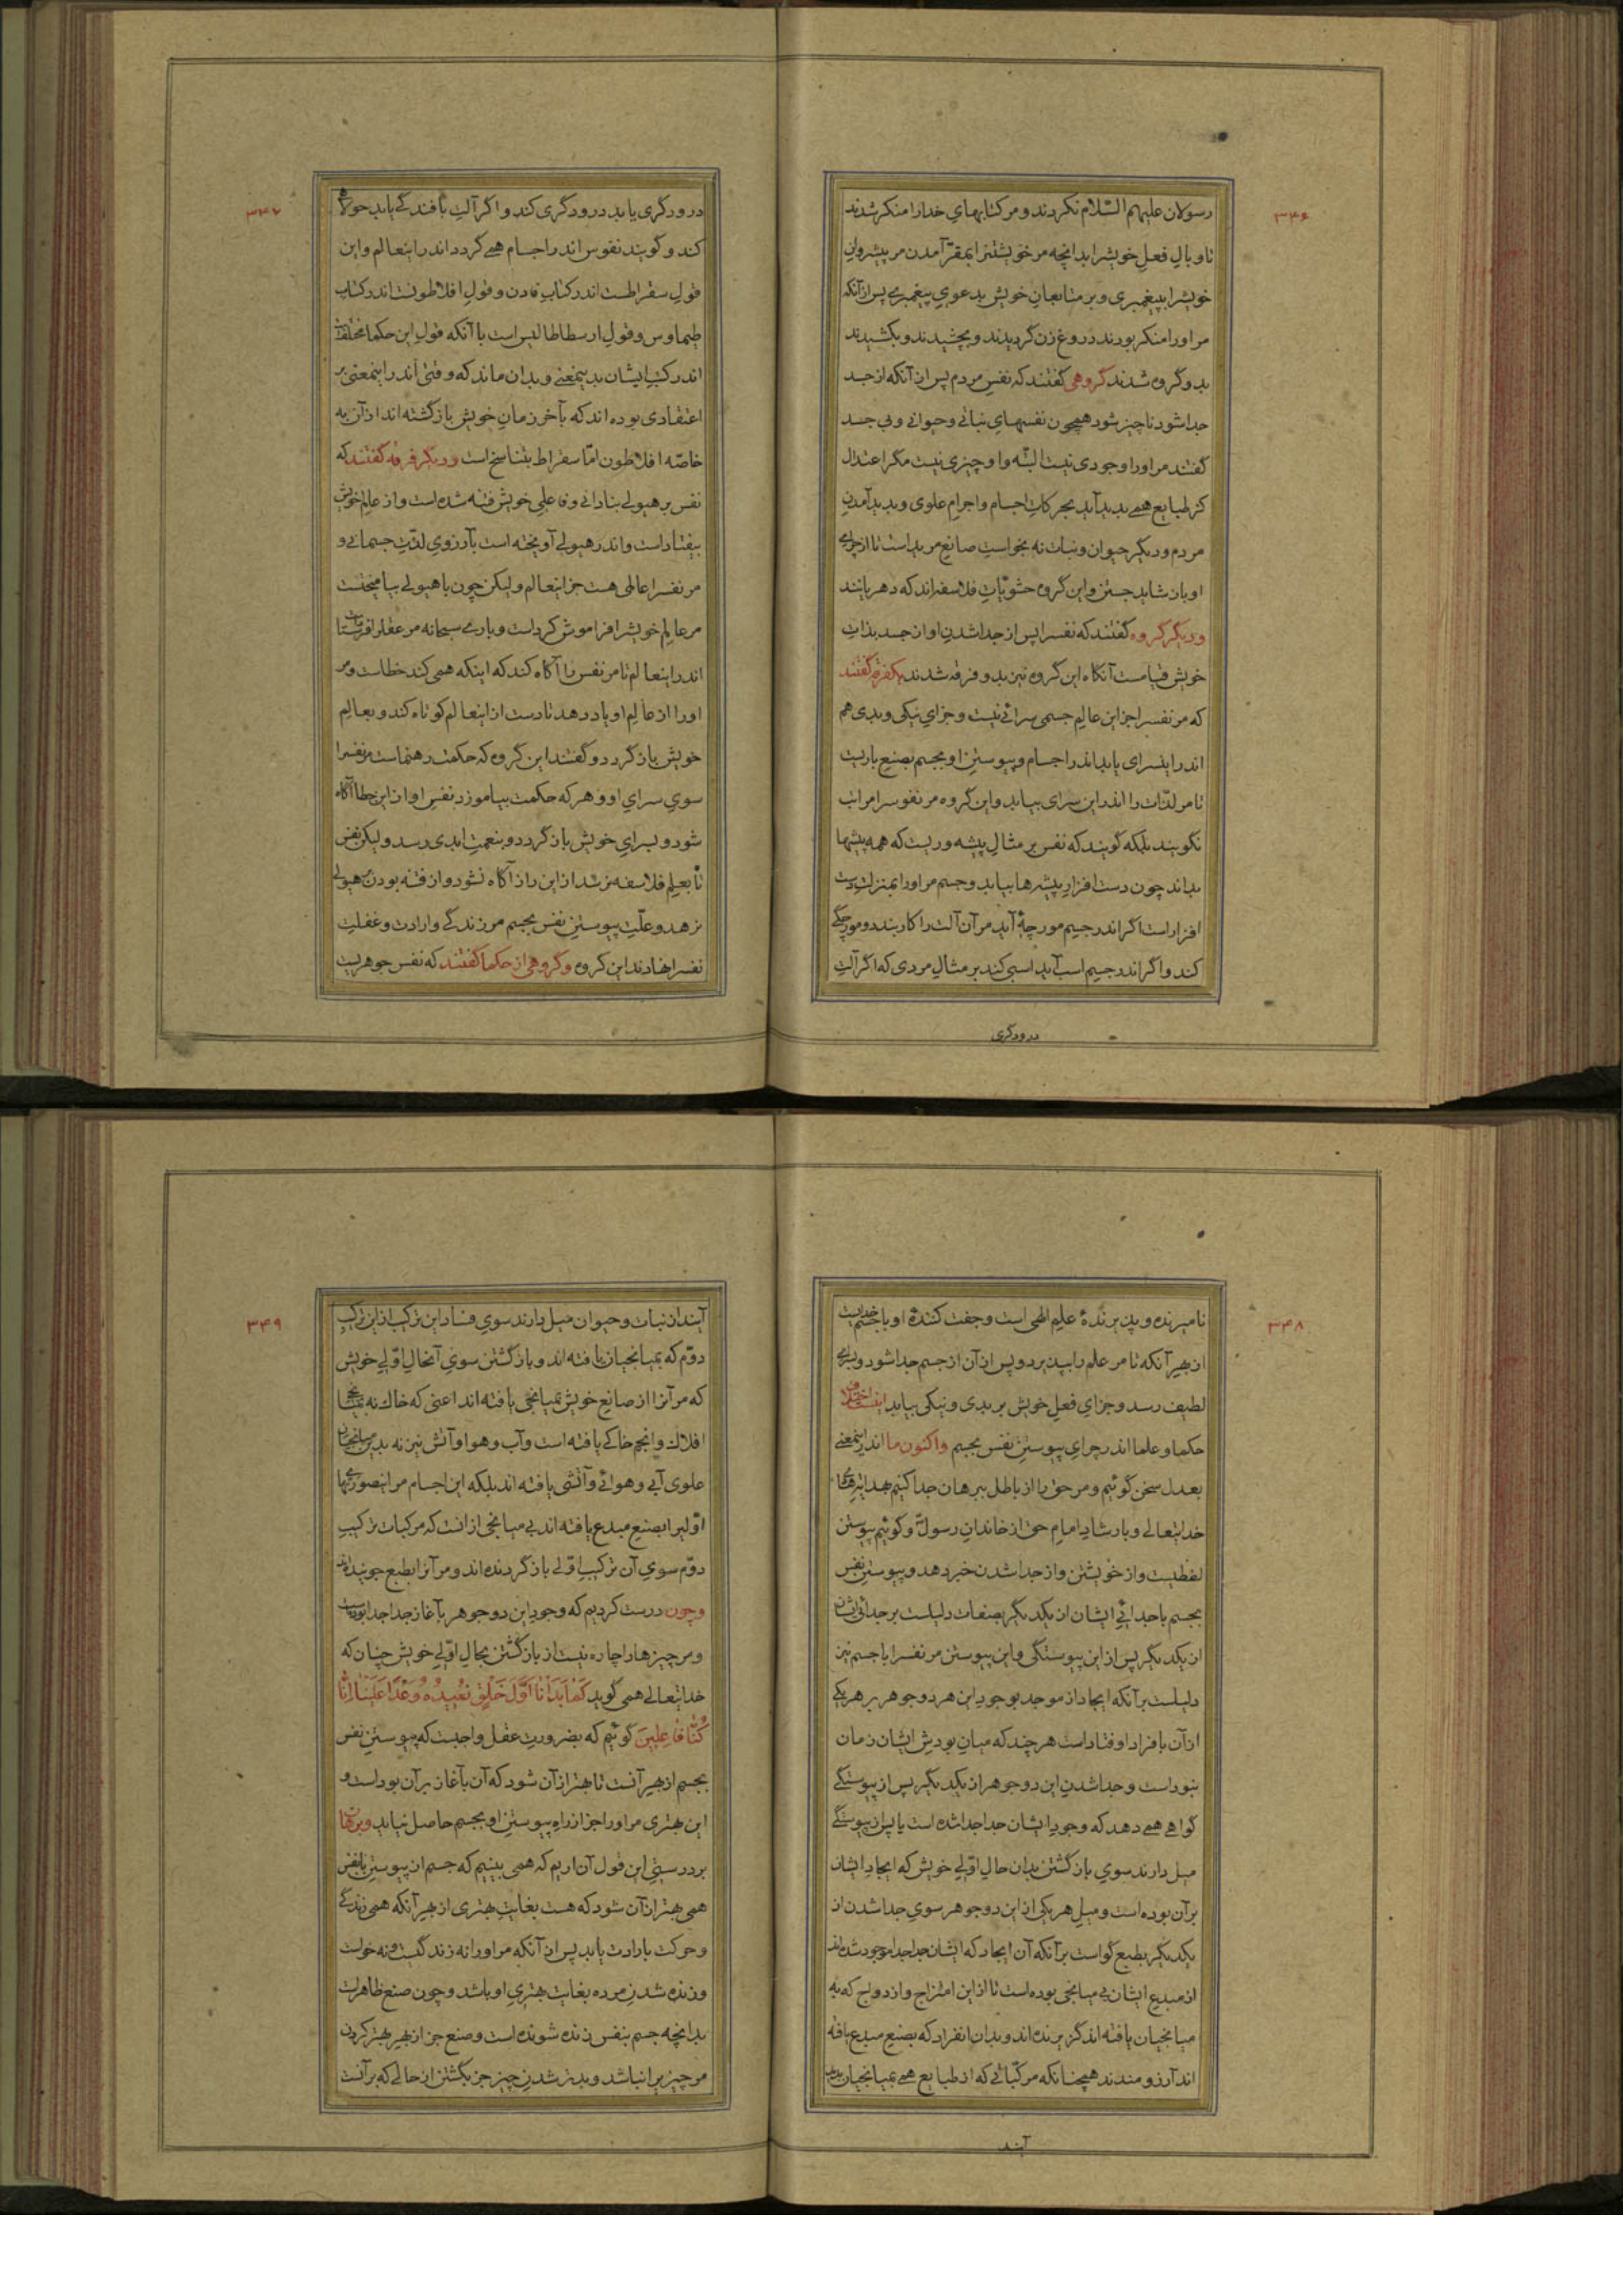 ۳۴۶
رسولان علیهم السّلام نکردند و مر کتابهای خدا را منکر شدند
تا وبالِ فعلِ خویشرا بدانچه مر خویشتنرا بمقرّ آمدن مر پیشروانِ
خویشرا بپیغمبری و بر متابعانِ خویش بدعویِ پیغمبری پس از آنکه
مر او را منکر بودند دروغ زن گردیدند و بچشیدند و بکشیدند
بدو گروه شدند گروهی گفتند که نفسِ مردم پس از آنکه از جسد
جدا شود ناچیز شود همچون نفسهایِ نباتی و حیوانی و بی جسد
گفتند مر او را وجودی نیست البتّه و او چیزی نیست مگر اعتدال
کز طبایع همی پدید آید بحرکاتِ اجسام و اجرامِ علوی و پدید آمدنِ
مردم و دیگر حیوان و نبات نه بخواستِ صانعِ مرید است تا از چرایی
او باز شاید جستن و این گروه حشویّاتِ فلاسفه اند که دهریانند
و دیگر گروه گفتند که نفسرا پس از جدا شدنِ او از جسد بذاتِ
خویش قیامست آنگاه این گروه نیز بدو فرقه شدند یکفرقه گفتند
که مر نفسرا جز این عالمِ جسمی سرائی نیست و جزایِ نیکی و بدی هم
اندر اینسرای یابد اندر اجسام و پیوستنِ او بجسم بصنعِ باریست
تا مر لذّات را اندر این سرای بیابد و این گروه مر نفوسرا مراتب
نگویند بلکه گویند که نفس بر مثالِ پیشه وریست که همه پیشها
بداند چون دست افزارِ پیشه ها بیابد و جسم مر او را بمنزلتِ دست
افزار است اگر اندر جسم مورچۀ آید مر آن آلت را کار بندد و مورچگی
کند و اگر اندر جسمِ اسب آید اسبی کند بر مثالِ مردی که اگر آلتِ
درودگری
۳۴۷
درودگری یابد درودگری کند و اگر آلتِ بافندگی یابد جولاهی
کند و گویند نفوس اندر اجسام همی گردد اندر اینعالم و این
قولِ سقراطست اندر کتابِ فادن و قولِ افلاطونست اندر کتاب
طیماوس و قولِ ارسطاطالیس است با آنکه قولِ این حکما مختلفست
اندر کتبِ ایشان بدینمعنی و بدان ماند که وقتی اندر اینمعنی بر
اعتقادی بوده اند که بآخر زمانِ خویش بازگشته اند از آن به
خاصّه افلاطون امّا سقراط بتناسخ است و دیگر فرقه گفتند که
نفس بر هیولی بنادانی و غافلیِ خویش فتنه شده است و از عالمِ خویش
بیفتاداست و اندر هیولی آویخته است بآرزویِ لذّتِ جسمانی و
مر نفسرا عالمی هست جز اینعالم ولیکن چون با هیولی بیامیختست
مر عالمِ خویشرا فراموش کرداست و باری سبحانه مر عقلرا فرستاداست
اندر اینعالم تا مر نفس را آگاه کند که اینکه همی کند خطاست و مر
او را از عالمِ او یاد دهد تا دست از اینعالم کوتاه کند و بعالمِ
خویش بازگردد و گفتند این گروه که حکمت رهنماست مر نفسرا
سویِ سرایِ او و هر که حکمت بیاموزد نفسِ او از این خطا آگاه
شود و بسرایِ خویش بازگردد و بنعمتِ ابدی رسد ولیکن نفس
تا بعلمِ فلاسفه نرسد از این راز آگاه نشود و از فتنه بودن بر هیولی
نرهد و علّتِ پیوستنِ نفس بجسم مر زندگی و ارادت و غفلتِ
نفسرا نهادند این گروه و گروهی از حکما گفتند که نفس جوهریست
۳۴۸
نامیرنده و پذیرندۀ علمِ الهی است و جفت کنندۀ او با جسم خدایست
از بهرِ آنکه تا مر علم را بپذیرد و پس از آن از جسم جدا شود و بسرای
لطیف رسد و جزایِ فعلِ خویش بر بدی و نیکی بیابد اینست اختلافِ
حکما و علما اندر چرایِ پیوستنِ نفس بجسم واکنون ما اندر اینمعنی
بعدل سخن گوئیم و مر حق را از باطل ببرهان جدا کنیم بهدایتِ
خدایتعالی و بارشادِ امامِ حق از خاندانِ رسولؐ و گوئیم پیوستن
لفظیست و از خویشتن و از جدا شدن خبر دهد و پیوستنِ نفس
بجسم با جدائیِ ایشان از یکدیگر بصفات دلیلست بر جدائیِ ایشان
از یکدیگر پس از این پیوستگی و این پیوستن مر نفسرا با جسم نیز
دلیلست بر آنکه ایجاد از موجد بوجودِ این هر دو جوهر بر هر یکی
از آن بافراد اوفتاداست هر چند که میانِ بودشِ ایشان زمان
نبوداست و جدا شدنِ این دو جوهر از یکدیگر پس از پیوستگی
گواهی همی دهد که وجودِ ایشان جدا جدا شده است یا پس از پیوستگی
میل دارند سویِ بازگشتن بدان حالِ اوّلیِ خویش که ایجادِ ایشان
بر آن بوده است و میلِ هر یکی از این دو جوهر سویِ جدا شدن از
یکدیگر بطبع گواست بر آنکه آن ایجاد که ایشان جدا جدا موجود شده اند
از مبدعِ ایشان بی میانجی بوده است تا از این امتزاج و ازدواج که به
میانجیان یافته اند گریزنده اند و بدان انفراد که بصنعِ مبدع یافته
اند آرزومندند همچنانکه مرکّباتی که از طبایع همی بمیانجیان پدید
آیند
۳۴۹
آیند از نبات و حیوان میل دارند سویِ فسادِ این ترکیب از این ترکیبِ
دوّم که بمیانجیان یافته اند و بازگشتن سویِ آنحالِ اوّلیِ خویش
که مر آنرا از صانعِ خویش بمیانجی یافته اند اعنی که خاک نه بمیانجی
افلاک و انجم خاکی یافته است و آب و هوا و آتش نیز نه بدین میانجیانِ
علوی آبی و هوائی و آتشی یافته اند بلکه این اجسام مر اینصورتها
اوّلیرا بصنعِ مبدع یافته اند بی میانجی از آنست که مرکّبات ترکیبِ
دوّم سویِ آن ترکیبِ اوّلی بازگردنده اند و مر آنرا بطبع جوینده اند
و چون درست کردیم که وجودِ این دو جوهر بآغاز جدا جدا بوداست
و مر چیزها را چاره نیست از بازگشتن بحالِ اوّلیِ خویش چنان که
خدایتعالی همی گوید کَمَا بَدَأْنَا أَوَّلَ خَلْقٍ نُعِیدُهُ وَعْدًا عَلَیْنَا إِنَّا
کُنَّا فَاعِلِینَ گوئیم که بضرورتِ عقل واجبست که پیوستنِ نفس
بجسم از بهرِ آنست تا بهتر از آن شود که آن بآغاز بر آن بوداست و
این بهتری مر او را جز از راهِ پیوستنِ او بجسم حاصل نیاید و برهان
بر درستیِ این قول آن اریم که همی بینیم که جسم از پیوستنِ با نفس
همی بهتر از آن شود که هست بغایتِ بهتری از بهرِ آنکه همی زندگی
و حرکت بارادت یابد پس از آنکه مر او را نه زندگیست و نه خواست
و زنده شدنِ مرده بغایتِ بهتریِ او باشد و چون صنع ظاهر است
بدانچه جسم بنفس زنده شونده است و صنع جز از بهرِ بهتر کردن
مر چیز را نباشد و بدتر شدنِ چیز جز بگشتن از حالی که بر آنست